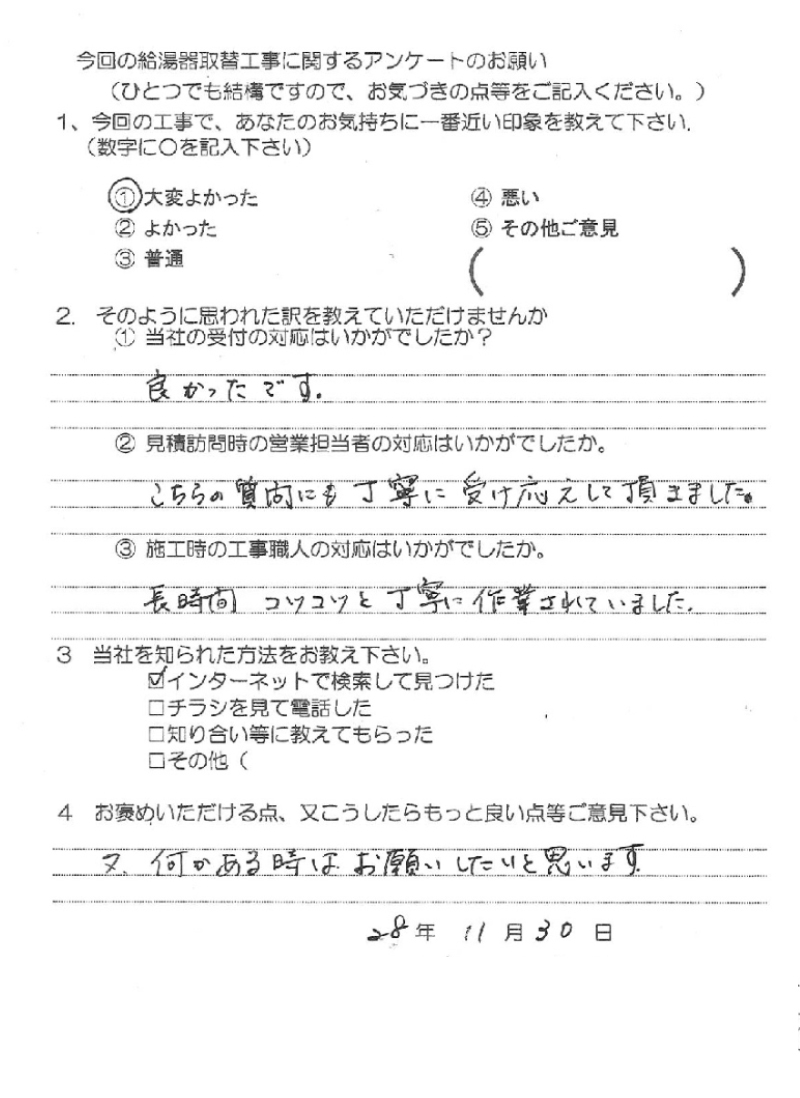 今回の給湯器取替工事に関するアンケートのお願い
(ひとつでも結構ですので、お気づきの点等をご記入ください。)
1、今回の工事で、あなたのお気持ちに一番近い印象を教えて下さい.
(数字に〇を記入下さい)
① 大変よかった ④ 悪い
② よかった ⑤ その他ご意見
③ 普通 ( )
2. そのように思われた訳を教えていただけませんか
① 当社の受付の対応はいかがでしたか?
良かったです.
② 見積訪問時の営業担当者の対応はいかがでしたか。
こちらの質問にも丁寧に受け応えして頂ました。
③ 施工時の工事職人の対応はいかがでしたか。
長時間 コツコツと丁寧に作業されていました.
3 当社を知られた方法をお教え下さい。
☑インターネットで検索して見つけた
□チラシを見て電話した
□知り合い等に教えてもらった
□その他(
4 お褒めいただける点、又こうしたらもっと良い点等ご意見下さい。
又、何かある時は お願いしたいと思います.
28年 11月30日